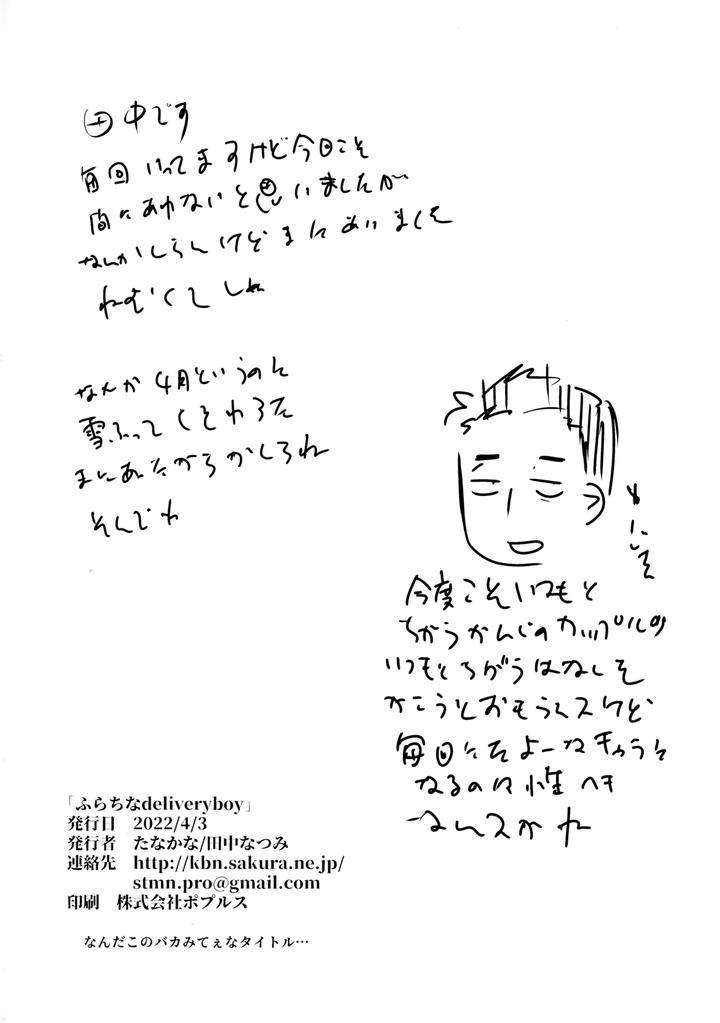 田中です
毎回いってますけど今回こそ
間にあわないと思いましたが
なんかしらんけどまにあいました
ねむくてしぬ
なんか4月というのに
雪ふってくそわろた
まにあたからかしらね
そんでわ
今度こそいつもと
ちがうかんじのカップルの
いつもとちがうはなしを
かこうとおもうんスけど
毎回にたよーなキャラに
なるのは性ヘキ
なんスかね
「ふらちなdeliveryboy」
発行日 2022/4/3
発行者 たなかな/田中なつみ
連絡先 http://kbn.sakura.ne.jp/
stmn.pro@gmail.com
印刷 株式会社ポプルス
なんだこのバカみてぇなタイトル…